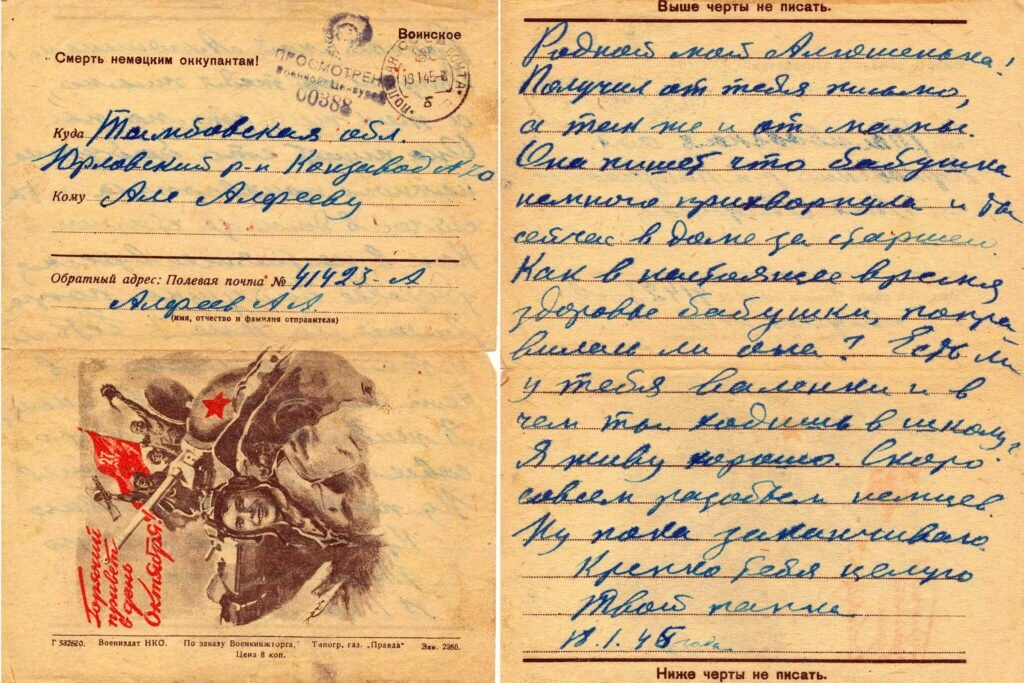 Воинское
Смерть немецким оккупантам!
ПРОСМОТРЕНО
Военной Цензурой
00388
ПОЛЕВАЯ ПОЧТА
19 1 45
б
Куда Тамбовская обл.
Юрловский р-н Конзавод №40
Кому Але Алфееву
Обратный адрес: Полевая почта № 41423-А
Алфеев А.А.
(имя, отчество и фамилия отправителя)
27
Горячий
привет
в день
Октября!
Г 582620. Воениздат НКО. По заказу Военкнижторга. Типогр. газ. „Правда" Зак. 2360.
Цена 8 коп.
Выше черты не писать.
Родной мой Алюшенька!
Получил от тебя письмо,
а так же и от мамы.
Она пишет что бабушка
немного прихворнула и ты
сейчас в доме за старшего
Как в настоящее время
здоровье бабушки, попра
вилась ли она? Есть ли
у тебя валенки и в
чем ты ходишь в школу?
Я живу хорошо. Скоро
совсем разобьем немцев.
Ну пока заканчиваю.
Крепко тебя целую
Твой папка
18.1.45 года
Ниже черты не писать.